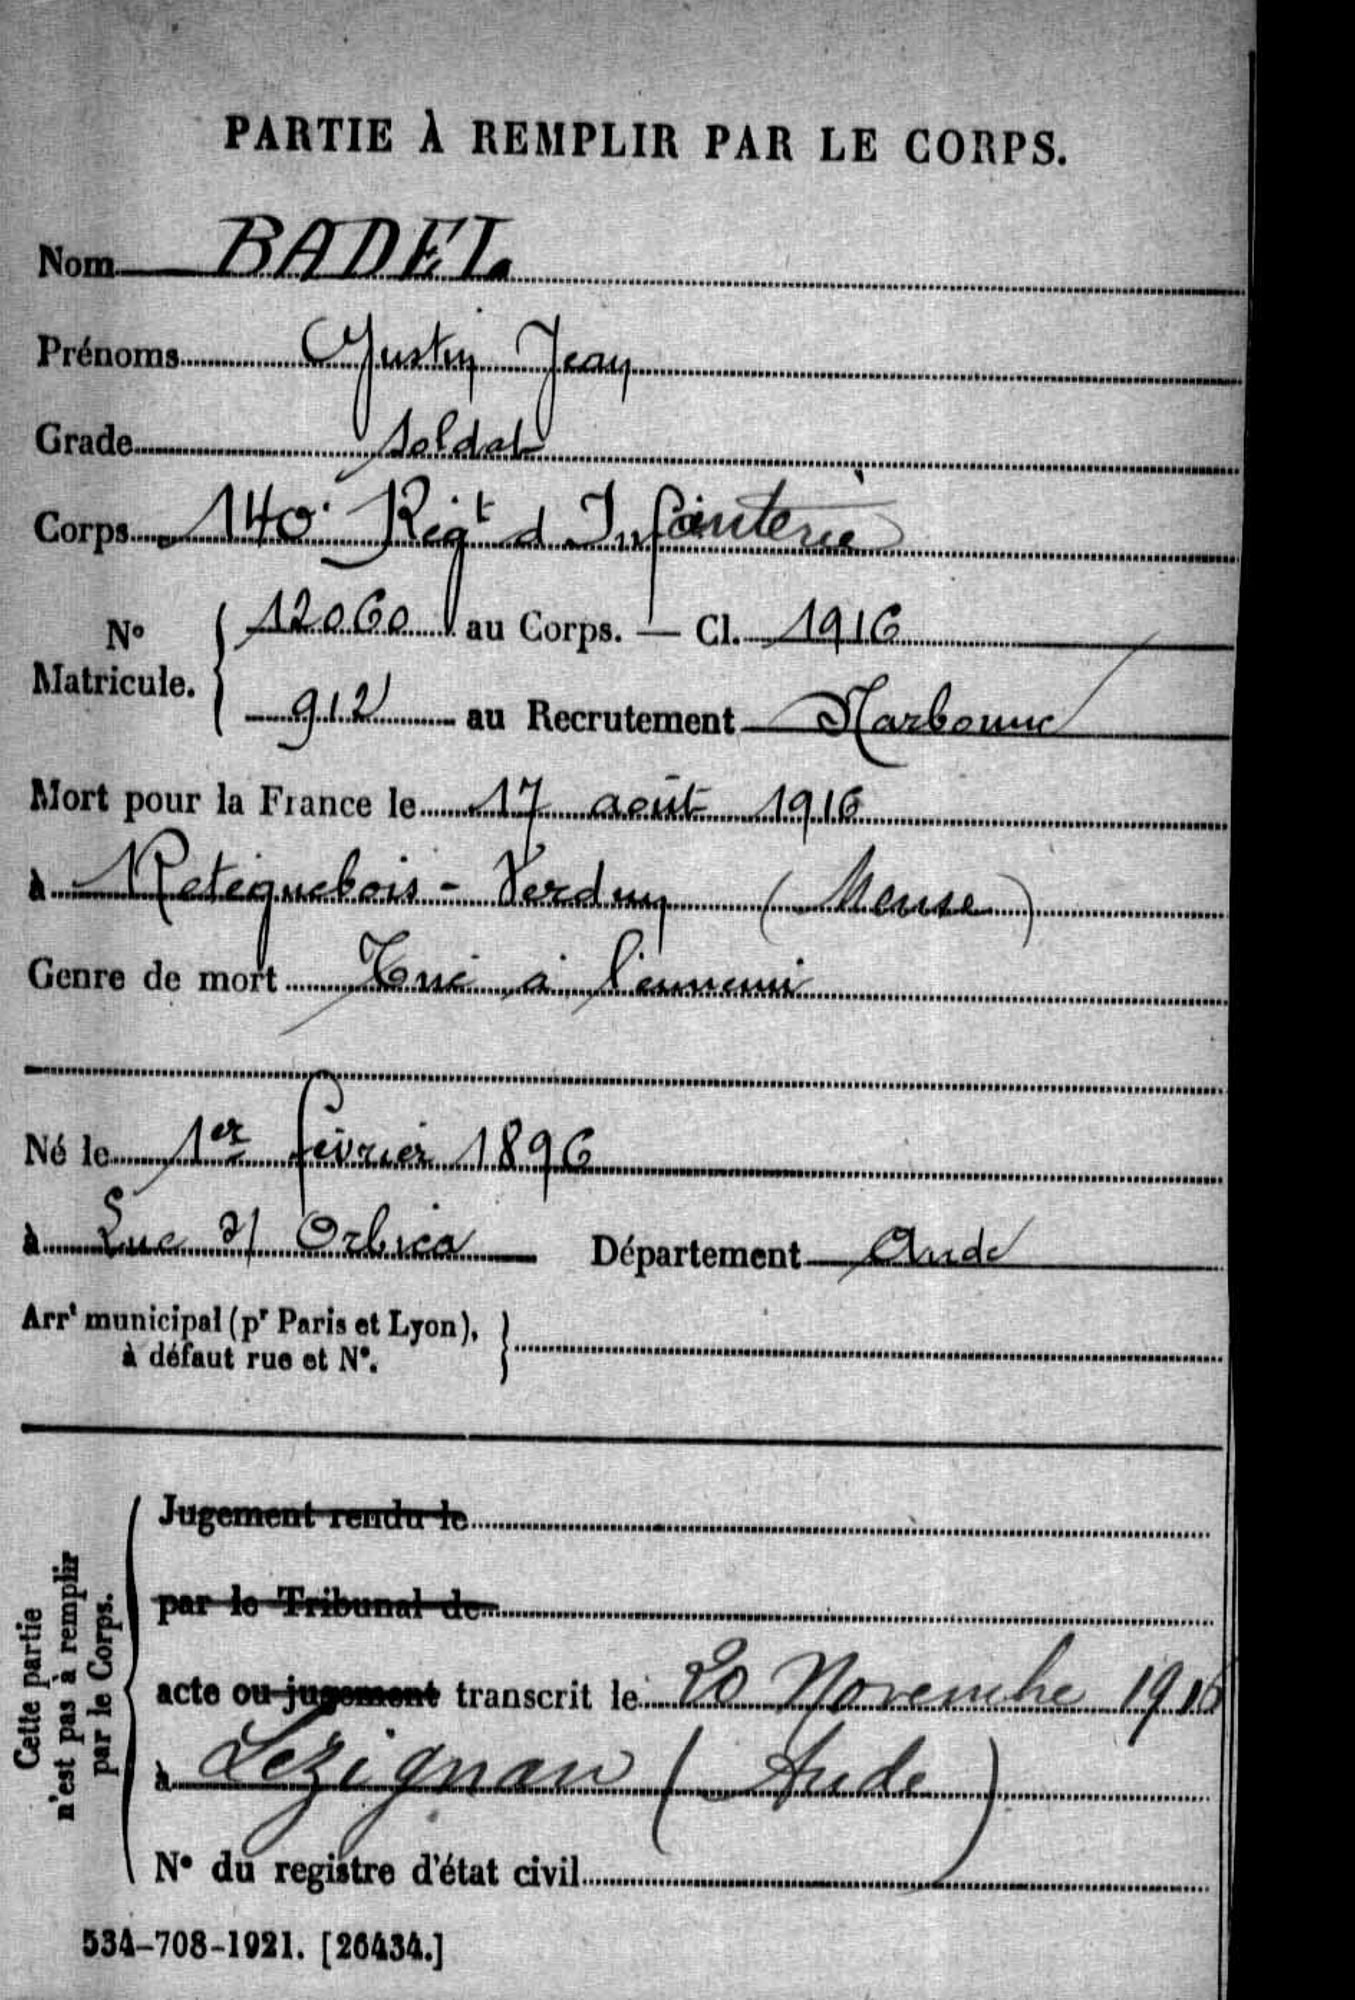 PARTIE À REMPLIR PAR LE CORPS.
Nom BADEL
Prénoms Justin Jean
Grade Soldat
Corps 140e Régt d Infanterie
No Matricule. 12060 au Corps. — Cl. 1916
912 au Recrutement Narbonne
Mort pour la France le 17 août 1916
à Retegnebois - Verdun (Meuse)
Genre de mort Tué à l'ennemi
Né le 1er février 1896
à Luc s/ Orbieu Département Aude
Arrt municipal (pr Paris et Lyon),
à défaut rue et No.
Cette partie
n'est pas à remplir
par le Corps.
Jugement rendu le
par le Tribunal de
acte ou jugement transcrit le 20 Novembre 1916
à Lezignan (Aude)
No du registre d'état civil
534-708-1921. [26434.]